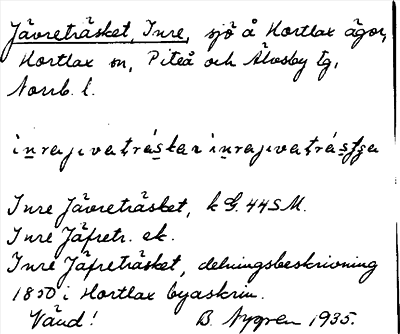 Jävreträsket, Inre, sjö å Hortlax ägor,
Hortlax sn, Piteå och Älvsby tg,
Norrb. l.
Inre Jävreträsket, k G. 44 S M.
Inre Jäfretr. ek.
Inre Jäfreträsket, delningsbeskrivning
1850 i Hortlax byaskrin.
Vänd! B. Nygren 1935.